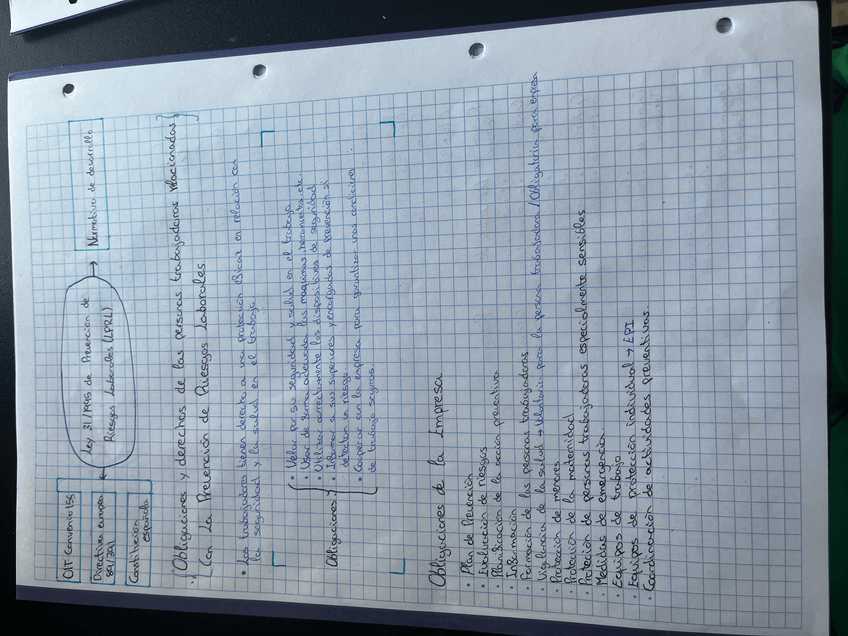 OIT Convenio 155
Directiva europea
89/391
Constitución
española
Ley 31/1995 de Prevención de
Riesgos Laborales (LPRL)
Normativa de desarrollo
Obligaciones y derechos de las personas trabajadoras relacionadas
con La Prevención de Riesgos Laborales
• Los trabajadores tienen derecho a una protección eficaz en relación con
la seguridad y la salud en el trabajo
Obligaciones:
• Velar por su seguridad y salud en el trabajo
• Usar de forma adecuada las maquinas, herramientas, etc
• Utilizar correctamente los dispositivos de seguridad
• Informar a sus superiores y encargados de prevención si
detectan un riesgo
• Cooperar con la empresa para garantizar unas condiciones
de trabajo seguras.
Obligaciones de la Empresa
• Plan de Prevención
• Evaluación de riesgos
• Planificación de la acción preventiva
• Información
• Formación de las personas trabajadoras
• Vigilancia de la salud → Voluntario para la persona trabajadora / Obligatoria para empresa
• Protección de menores
• Protección de la maternidad
• Protección de personas trabajadoras especialmente sensibles
• Medidas de emergencia
• Equipos de trabajo
• Equipos de protección individual → EPI
• Coordinación de actividades preventivas.